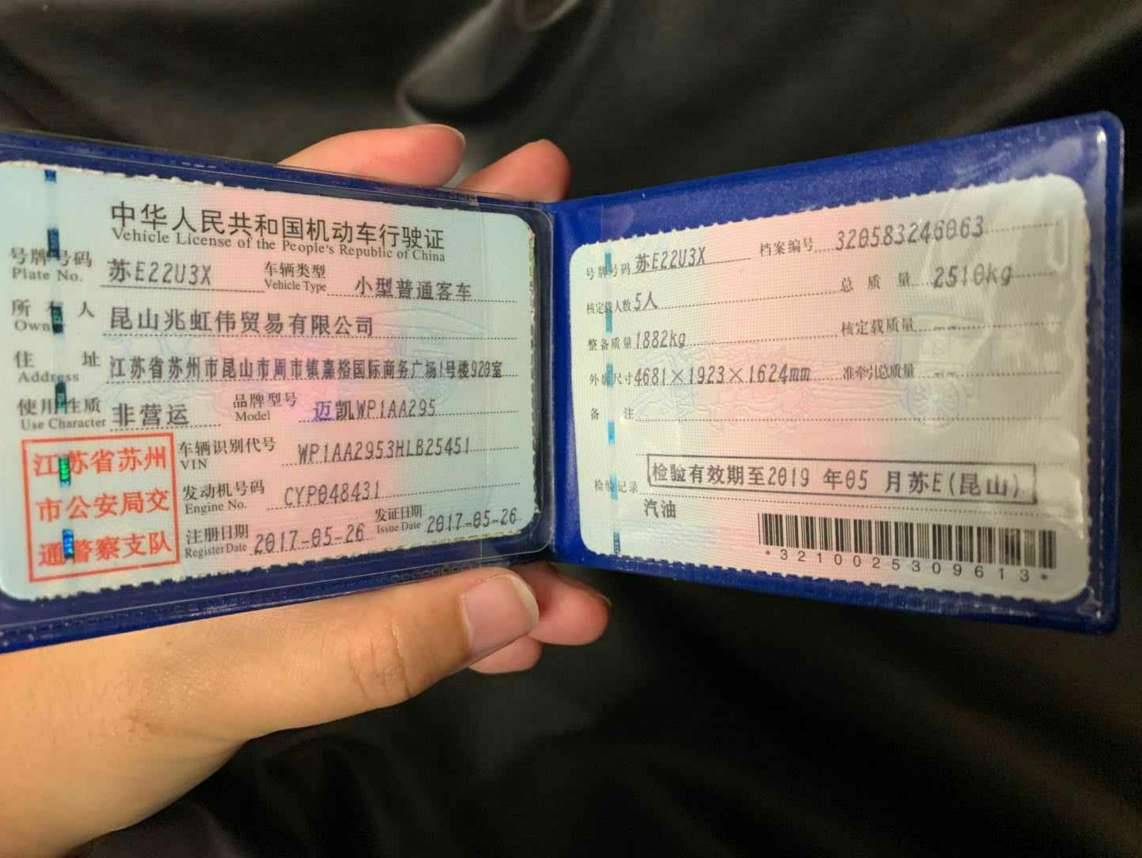 中华人民共和国机动车行驶证
Vehicle License of the People's Republic of China
号牌号码 苏E22U3X 车辆类型 小型普通客车
Plate No. Vehicle Type
所有人 昆山兆虹伟贸易有限公司
Owner
住址 江苏省苏州市昆山市周市镇嘉裕国际商务广场1号楼920室
Address
使用性质 非营运 品牌型号 迈凯WP1AA295
Use Character Model
江苏省苏州
市公安局交
通警察支队
车辆识别代号 WP1AA2953HLB25451
VIN
发动机号码 CYP048431
Engine No.
注册日期 2017-05-26 发证日期 2017-05-26
Register Date Issue Date
号牌号码 苏E22U3X 档案编号 320583246063
核定载人数 5人 总质量 2510kg
整备质量 1882kg 核定载质量 --
外廓尺寸 4681×1923×1624mm 准牵引总质量 --
备注
检验记录 检验有效期至2019年05月苏E(昆山)
汽油
*3210025309613*